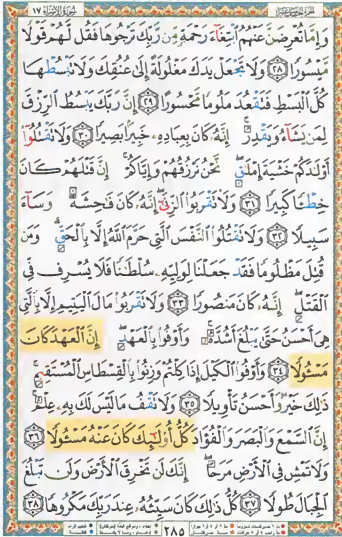 سورة الإسراء ١٧
وَإِمَّا تُعْرِضَنَّ عَنْهُمُ ابْتِغَاءَ رَحْمَةٍ مِنْ رَبِّكَ تَرْجُوهَا فَقُلْ لَهُمْ قَوْلًا
مَيْسُورًا ﴿٢٨﴾ وَلَا تَجْعَلْ يَدَكَ مَغْلُولَةً إِلَىٰ عُنُقِكَ وَلَا تَبْسُطْهَا
كُلَّ الْبَسْطِ فَتَقْعُدَ مَلُومًا مَحْسُورًا ﴿٢٩﴾ إِنَّ رَبَّكَ يَبْسُطُ الرِّزْقَ
لِمَنْ يَشَاءُ وَيَقْدِرُ إِنَّهُ كَانَ بِعِبَادِهِ خَبِيرًا بَصِيرًا ﴿٣٠﴾ وَلَا تَقْتُلُوا
أَوْلَادَكُمْ خَشْيَةَ إِمْلَاقٍ نَحْنُ نَرْزُقُهُمْ وَإِيَّاكُمْ إِنَّ قَتْلَهُمْ كَانَ
خِطْئًا كَبِيرًا ﴿٣١﴾ وَلَا تَقْرَبُوا الزِّنَىٰ إِنَّهُ كَانَ فَاحِشَةً وَسَاءَ
سَبِيلًا ﴿٣٢﴾ وَلَا تَقْتُلُوا النَّفْسَ الَّتِي حَرَّمَ اللَّهُ إِلَّا بِالْحَقِّ وَمَنْ
قُتِلَ مَظْلُومًا فَقَدْ جَعَلْنَا لِوَلِيِّهِ سُلْطَانًا فَلَا يُسْرِفْ فِي
الْقَتْلِ إِنَّهُ كَانَ مَنْصُورًا ﴿٣٣﴾ وَلَا تَقْرَبُوا مَالَ الْيَتِيمِ إِلَّا بِالَّتِي
هِيَ أَحْسَنُ حَتَّىٰ يَبْلُغَ أَشُدَّهُ وَأَوْفُوا بِالْعَهْدِ إِنَّ الْعَهْدَ كَانَ
مَسْئُولًا ﴿٣٤﴾ وَأَوْفُوا الْكَيْلَ إِذَا كِلْتُمْ وَزِنُوا بِالْقِسْطَاسِ الْمُسْتَقِيمِ
ذَٰلِكَ خَيْرٌ وَأَحْسَنُ تَأْوِيلًا ﴿٣٥﴾ وَلَا تَقْفُ مَا لَيْسَ لَكَ بِهِ عِلْمٌ
إِنَّ السَّمْعَ وَالْبَصَرَ وَالْفُؤَادَ كُلُّ أُولَٰئِكَ كَانَ عَنْهُ مَسْئُولًا ﴿٣٦﴾
وَلَا تَمْشِ فِي الْأَرْضِ مَرَحًا إِنَّكَ لَنْ تَخْرِقَ الْأَرْضَ وَلَنْ تَبْلُغَ
الْجِبَالَ طُولًا ﴿٣٧﴾ كُلُّ ذَٰلِكَ كَانَ سَيِّئُهُ عِنْدَ رَبِّكَ مَكْرُوهًا ﴿٣٨﴾
٢٨٥